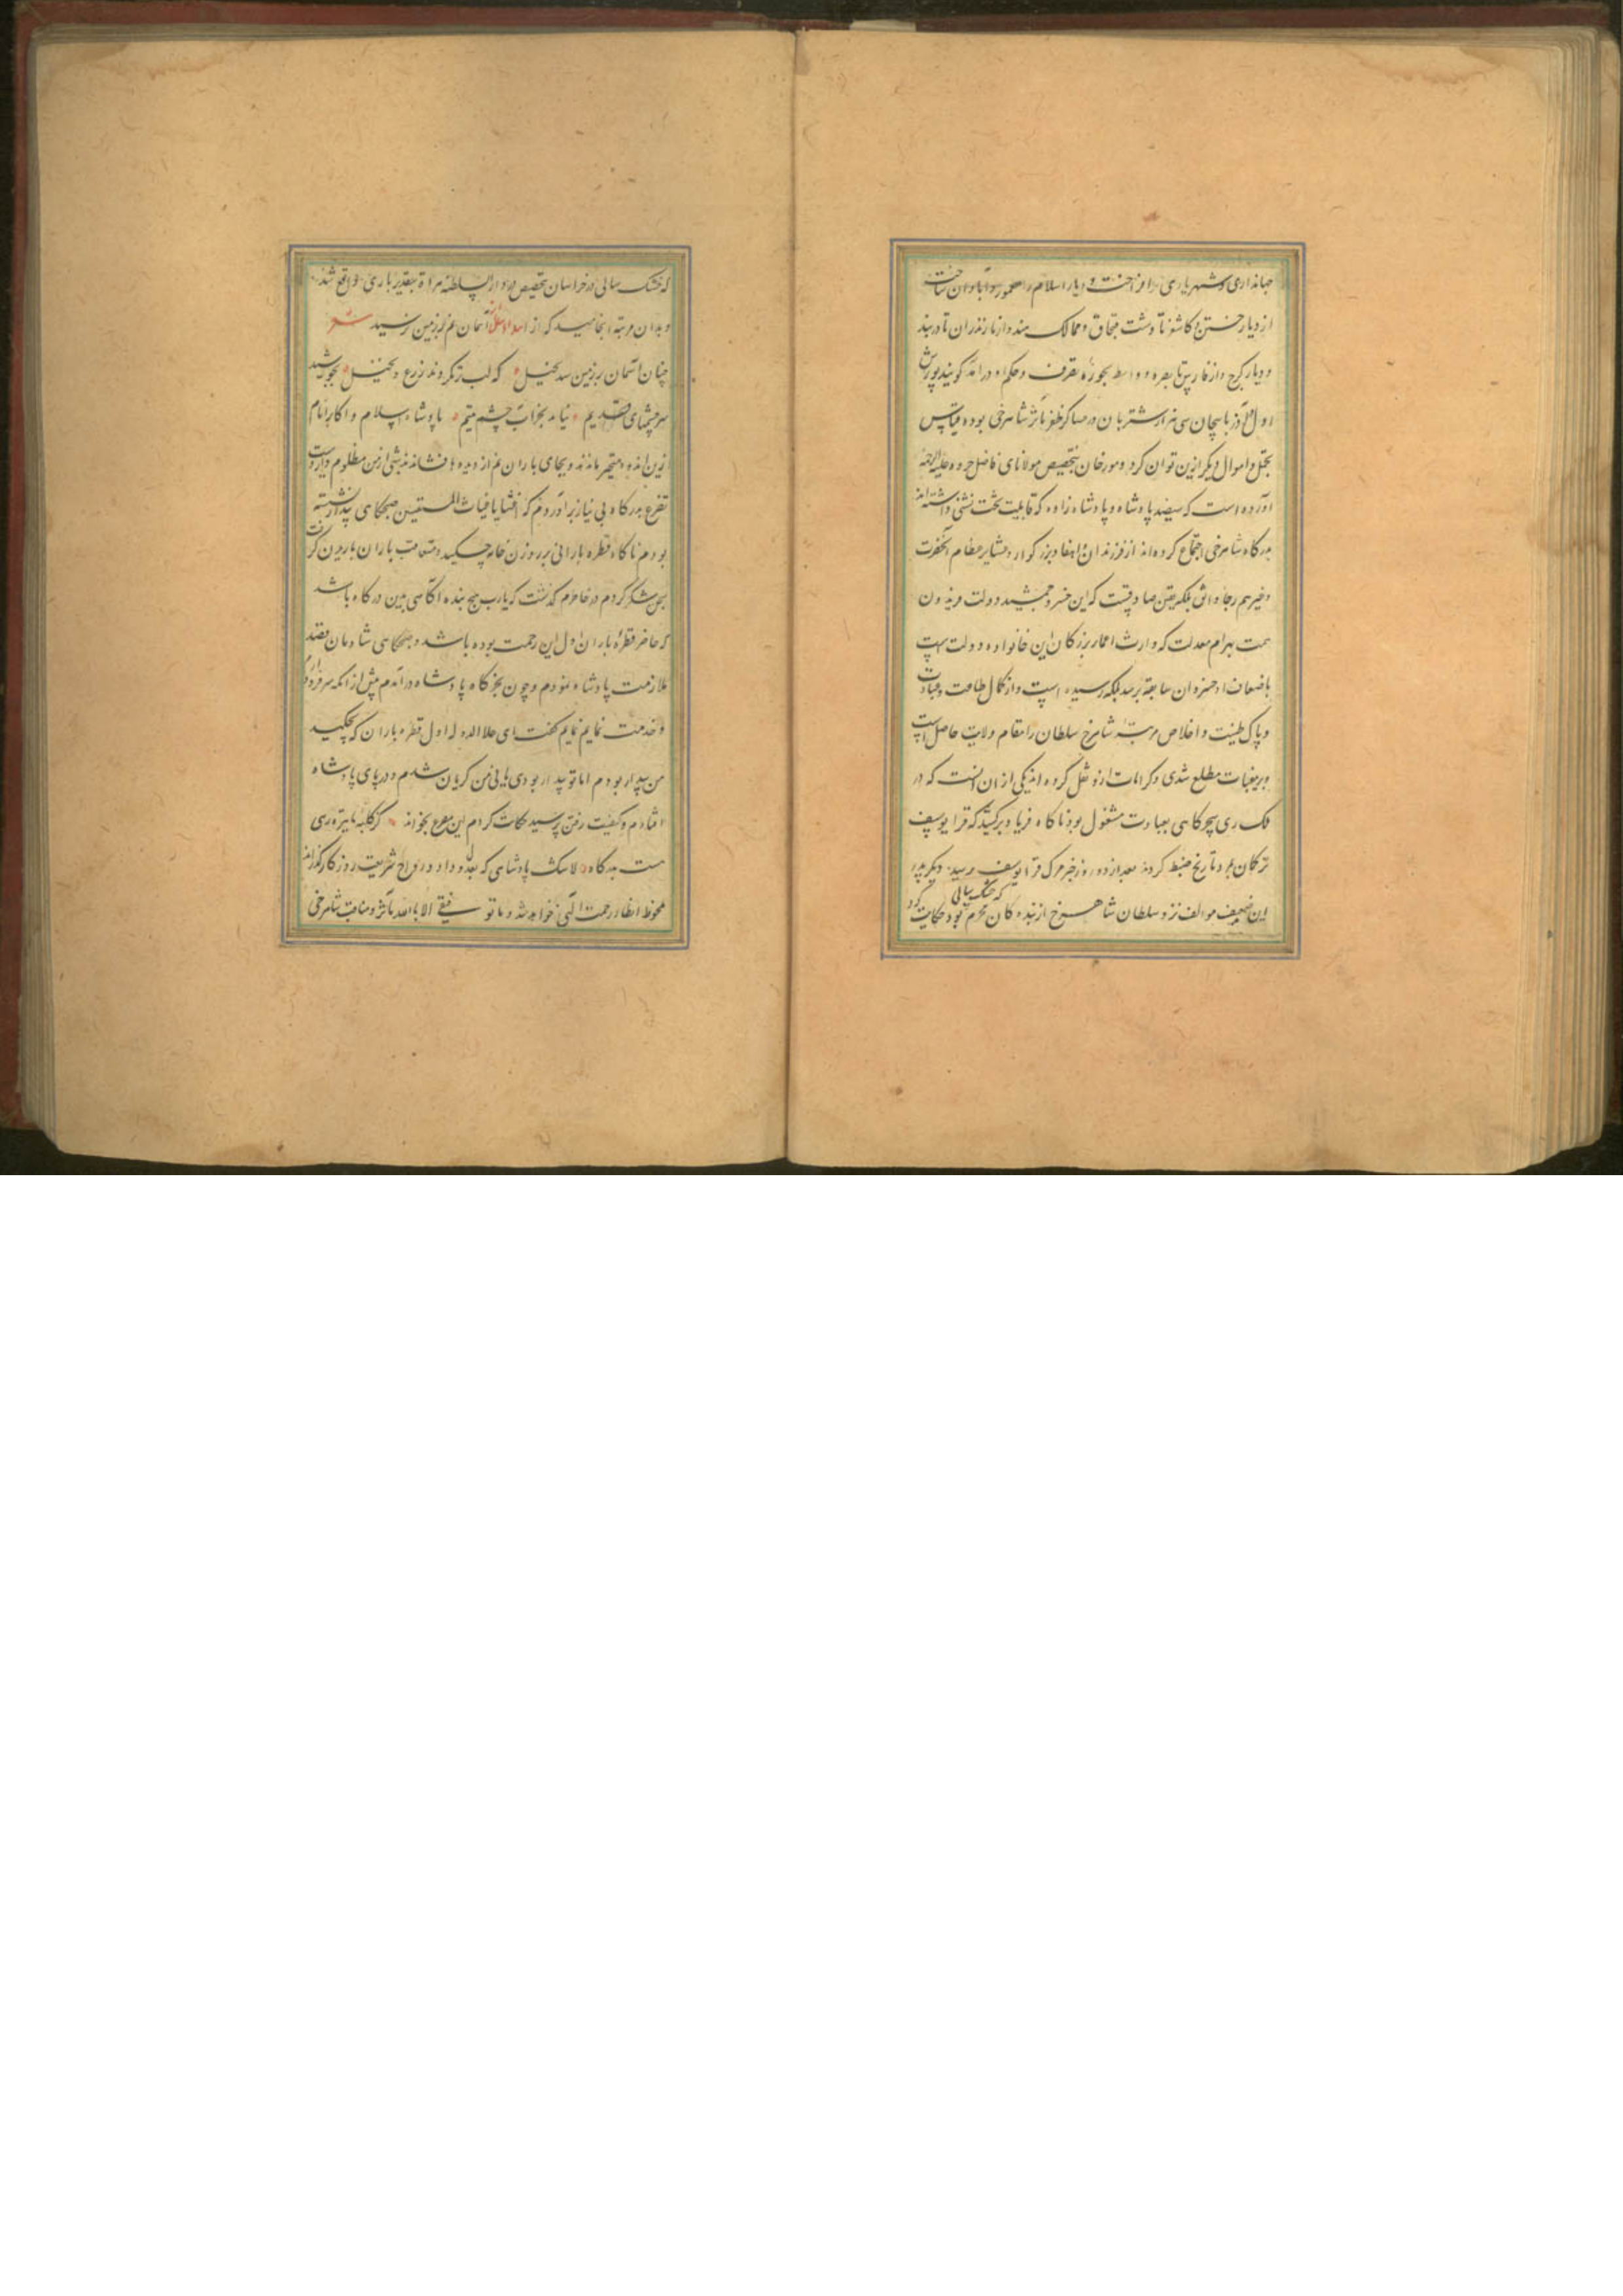 جهانداری و شهریاری برافراخت و دیار اسلام را معمور و آبادان ساخت
از دیار ختن و کاشغر تا دشت قبچاق و ممالک هند و از مازندران تا دربند
و دیار کرج و از فارس تا بصره و واسط بحوزه تصرف و حکم او درامد کویند یورش
اول آذربایجان سی هزار شتربان در عساکر ظفر مآثر شاهرخی بوده قیاس
تجمل و اموال دیکر ازین توان کرد و مورخان بتخصیص مولانای فاضل علیه الرحمه
آورده است که سیصد پادشاه و پادشاه زاده که قابلیت تخت نشینی داشته اند
بدرکاه شاهرخی اجتماع کرده اند از فرزندان و احفاد بزرکوار و عشایر عظام آنحضرت
و غیرهم رجا واثق بلکه یقین صادقست که این خسرو جمشید دولت فریدون
همت بهرام معدلت که وارث اعمار بزرکان این خانواده و دولت است
باضعاف ان سابقه برسد بلکه رسیده است و از کمال طاعت و عبادت
و پاک طینت و اخلاص مرتبهٔ شاهرخ سلطان را مقام ولایت حاصل است
و بر مغیبات مطلع شدی و کرامات ازو نقل کرده اند یکی از ان انست که در
ملک ری سحرکاهی بعبادت مشغول بود ناکاه فریاد برکشید که قرا یوسف
ترکمان بمرد تاریخ ضبط کردند بعد از دو روز خبر مرک قرا یوسف رسید دیکر پدر
این ضعیف مولف نزد سلطان شاهرخ از بنده کان محرم بود حکایت کرد
که خشک سالی
که خشک سالی در خراسان بتخصیص در دار السلطنه هراة بتقدیر باری واقع شد
و بدان مرتبه انجامید که از آسمان نم بر زمین نرسید شعر
چنان آسمان بر زمین شد بخیل که لب تر نکردند زرع و نخیل بجوشید
سرچشمهای قدیم نماند بجز آب چشم یتیم پادشاه اسلام و اکابر انام
زین اندوه متحیر ماندند و بجای باران نم از دیده ها فشاندند شبی از من مظلوم دست
تضرع بدرکاه بی نیاز برآوردم که اغثنا یا غیاث المستغیثین صبحکاهی نشسته
بودم ناکاه قطره بارانی بر روزن خانه چکید و متعاقب باران باریدن کرفت
شکر کردم در خاطرم کذشت که یارب هیچ بنده آکاهی بدین درکاه باشد
که حاضر قطرهٔ باران اول این رحمت بوده باشد و صبحکاهی شادمان قصد
ملازمت پادشاه نمودم و چون بخرکاه پادشاه درآمدم پیش از انکه سر فرود آرم
و خدمت نمایم کفت ای علاء الدوله اول قطره باران که چکید
من بیدار بودم اما تو بیدار بودی یا نی من کریان شدم و در پای پادشاه
افتادم و کیفیت رفتن پرسید حکایت کردم این مصرع بخواند کر کلبه ما تیره رهی
هست بدرکاه لا شک پادشاهی که بعدل و داد و رواج شریعت روزکار کذراند
ملحوظ انظار رحمت الهی خواهد شد و ما توفیقی الا بالله مآثر و مناقب شاهرخی